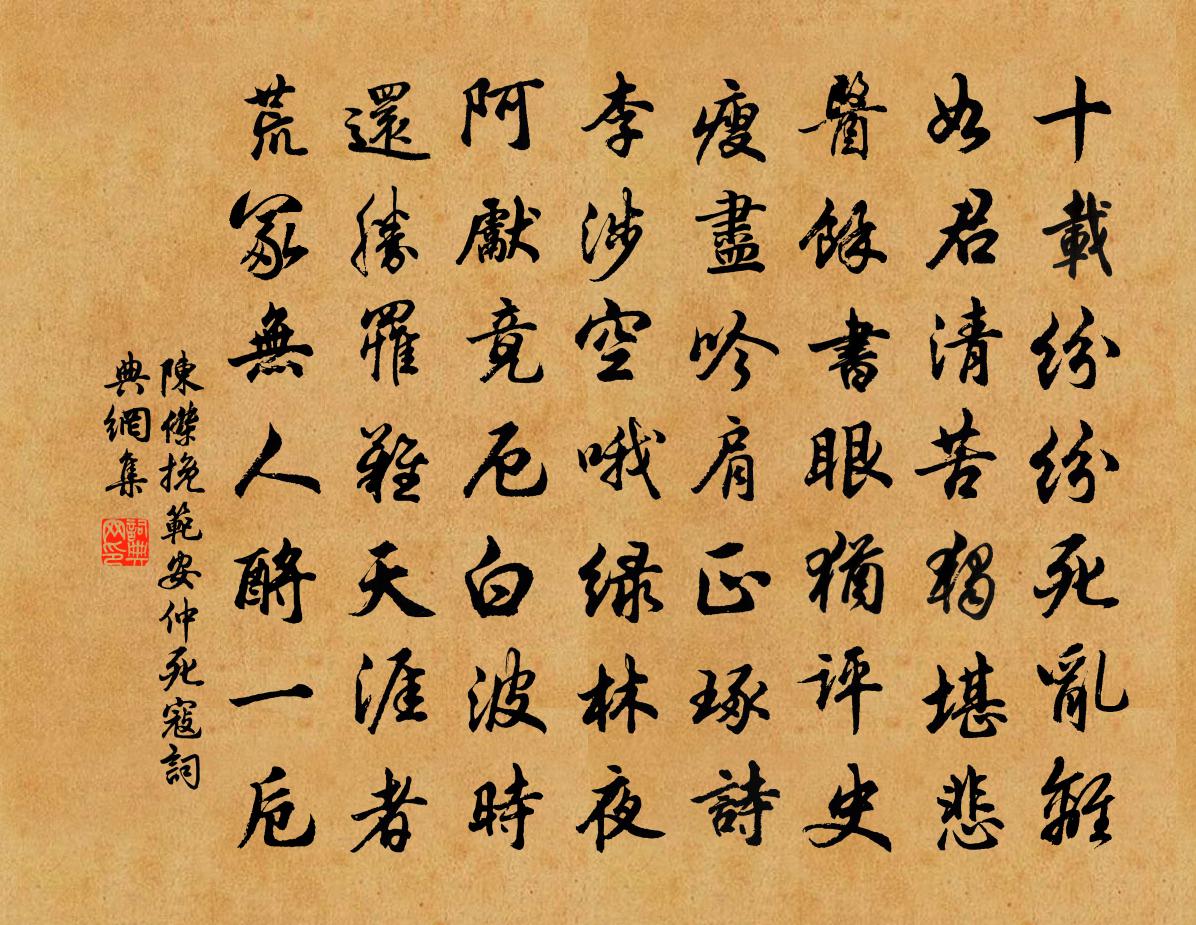 十載紛紛死亂離
如君清苦獨堪悲
醫餘書眼猶評史
瘦盡吟肩正琢詩
李涉空哦綠林夜
阿獻竟厄白波時
還勝罹難天涯者
荒冢無人酹一卮
陳傑挽範安仲死寇詞
典網集
詞典網印